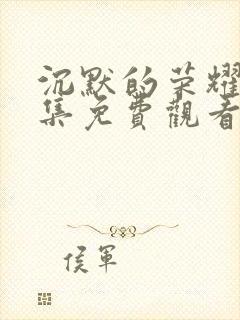 沉默的荣耀
集免費觀看
侯軍